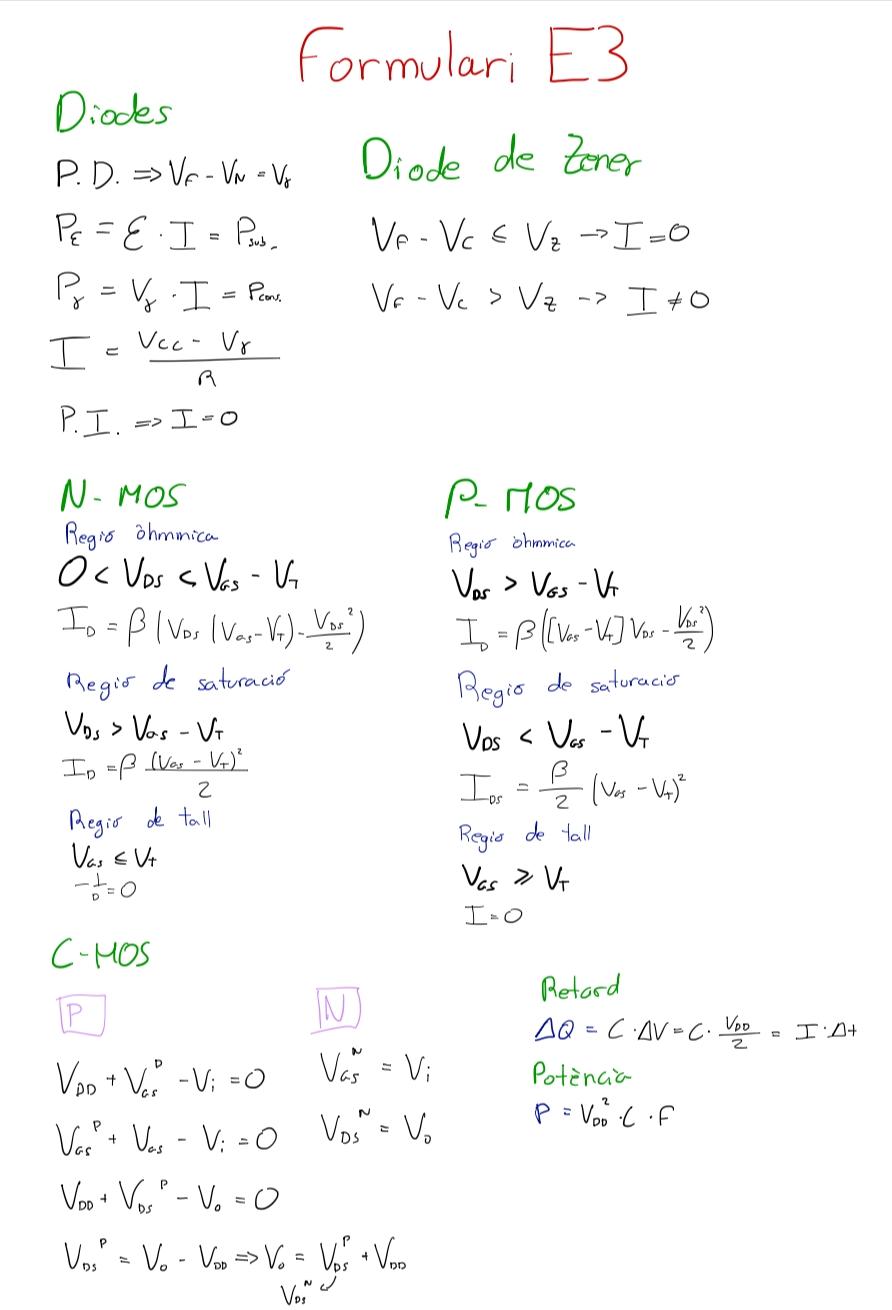 Formulari E3
Diodes
P.D. => V_F - V_N = V_γ
P_ε = ε · I = P_sub.
P_γ = V_γ · I = P_cons.
I = (V_CC - V_γ) / R
P.I. => I = 0
Diode de Zener
V_F - V_C ≤ V_Z -> I = 0
V_F - V_C > V_Z -> I ≠ 0
N-MOS
Regió òhmmica
0 < V_DS < V_GS - V_T
I_D = β (V_DS (V_GS - V_T) - V_DS² / 2)
Regio de saturació
V_DS > V_GS - V_T
I_D = β (V_GS - V_T)² / 2
Regio de tall
V_GS ≤ V_T
I_D = 0
P-MOS
Regió òhmmica
V_DS > V_GS - V_T
I_D = β ([V_GS - V_T] V_DS - V_DS² / 2)
Regio de saturacio
V_DS < V_GS - V_T
I_DS = β / 2 (V_GS - V_T)²
Regio de tall
V_GS ≥ V_T
I = 0
C-MOS
P
V_DD + V_GS^P - V_i = 0
V_GS^P + V_GS - V_i = 0
V_DD + V_DS^P - V_o = 0
V_DS^P = V_o - V_DD => V_o = V_DS^P + V_DD
V_DS^N
N
V_GS^N = V_i
V_DS^N = V_o
Retard
ΔQ = C · ΔV = C · V_DD / 2 = I · Δt
Potència
P = V_DD² · C · F